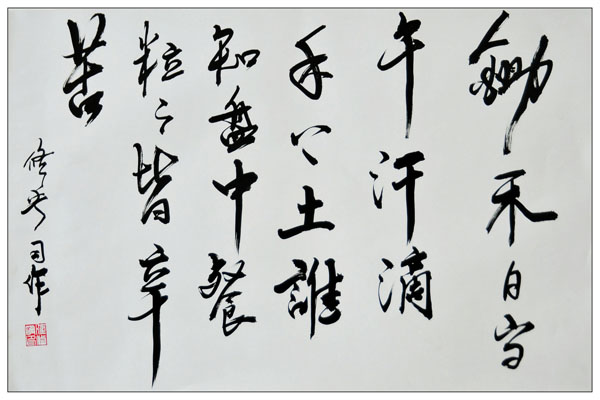 鋤禾日当
午汗滴
禾下土誰
知盤中餐
粒々皆辛
苦
司作